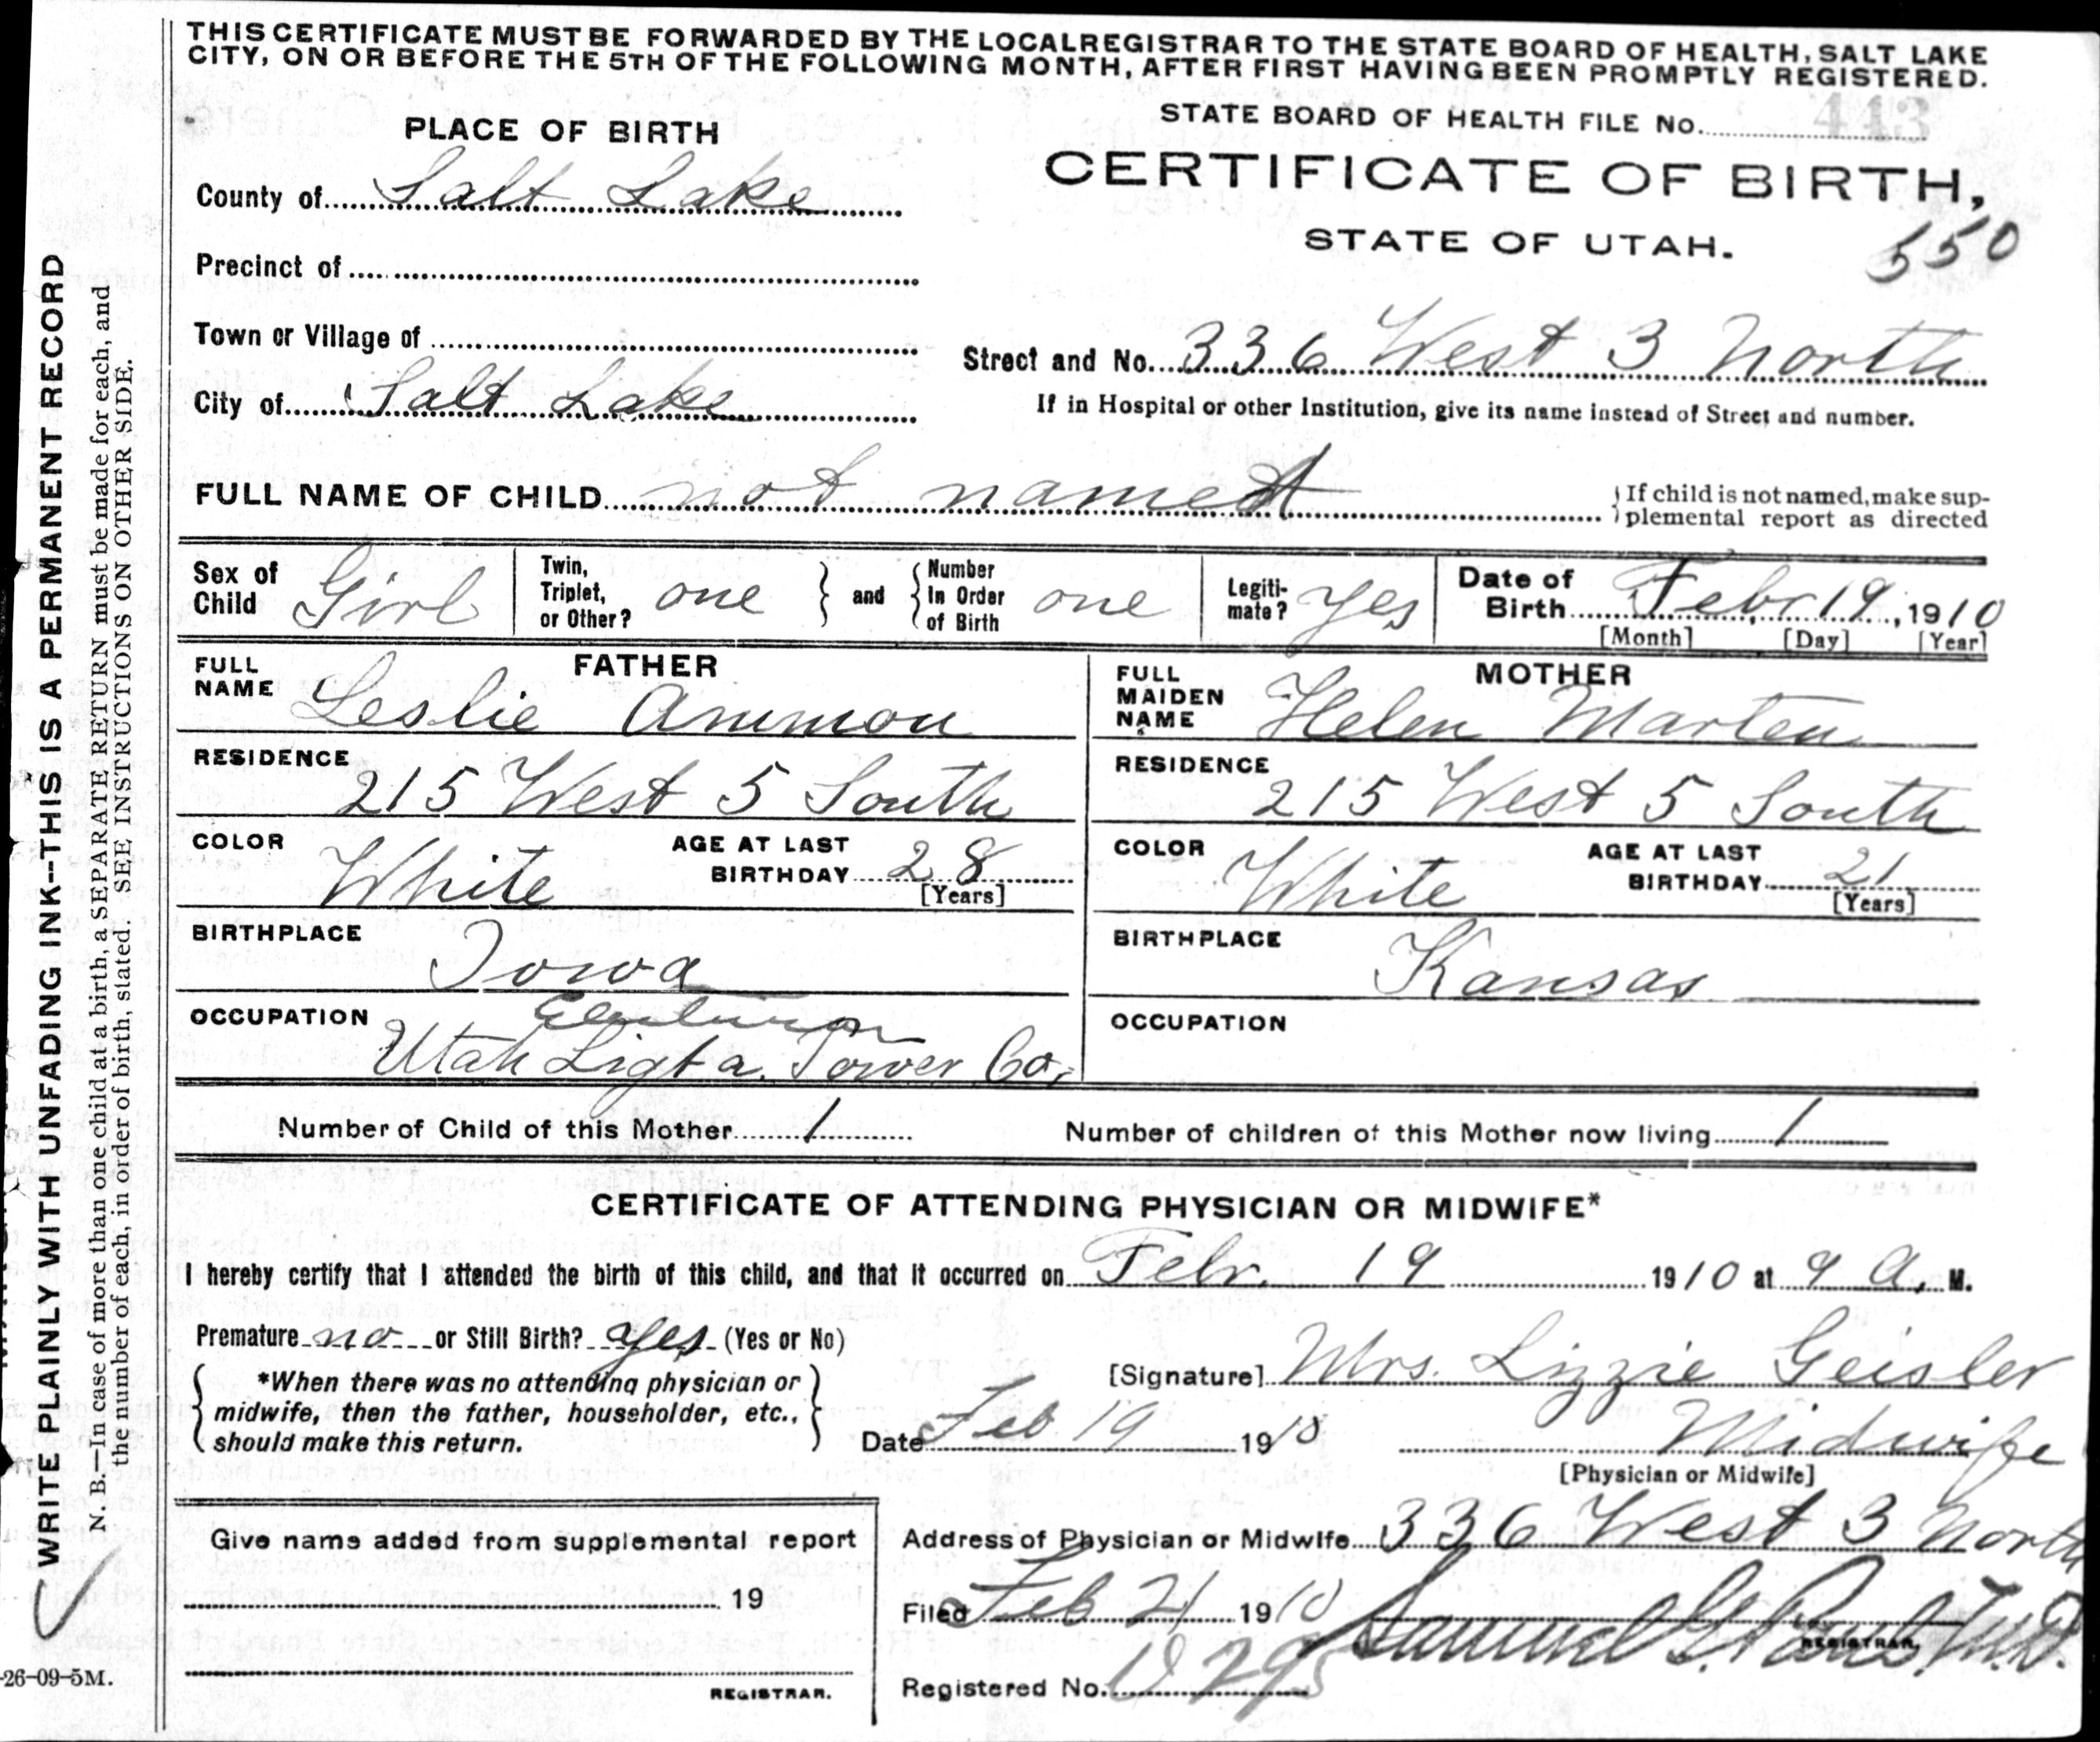 THIS CERTIFICATE MUST BE FORWARDED BY THE LOCAL REGISTRAR TO THE STATE BOARD OF HEALTH, SALT LAKE
CITY, ON OR BEFORE THE 5TH OF THE FOLLOWING MONTH, AFTER FIRST HAVING BEEN PROMPTLY REGISTERED.
STATE BOARD OF HEALTH FILE No. 443
PLACE OF BIRTH
CERTIFICATE OF BIRTH,
STATE OF UTAH.
550
County of Salt Lake
Precinct of
Town or Village of
City of Salt Lake
Street and No. 336 West 3 North
If in Hospital or other Institution, give its name instead of Street and number.
FULL NAME OF CHILD not named
If child is not named, make sup-
plemental report as directed
Sex of Child Girl
Twin, Triplet, or Other? one and Number In Order of Birth one
Legiti-mate? yes
Date of Birth Febr 19, 1910
[Month] [Day] [Year]
FATHER
FULL NAME Leslie Ammon
RESIDENCE 215 West 5 South
COLOR White AGE AT LAST BIRTHDAY 28
[Years]
BIRTHPLACE Iowa
OCCUPATION
Utah Ligt a. Power Co.
MOTHER
FULL MAIDEN NAME Helen Marten
RESIDENCE 215 West 5 South
COLOR White AGE AT LAST BIRTHDAY 21
[Years]
BIRTHPLACE Kansas
OCCUPATION
Number of Child of this Mother 1
Number of children of this Mother now living 1
CERTIFICATE OF ATTENDING PHYSICIAN OR MIDWIFE*
I hereby certify that I attended the birth of this child, and that it occurred on Febr. 19 1910 at 9 A. M.
Premature no or Still Birth? yes (Yes or No)
*When there was no attending physician or
midwife, then the father, householder, etc.,
should make this return.
[Signature] Mrs. Lizzie Geisler
Date Feb 19 1910
Midwife
[Physician or Midwife]
Give name added from supplemental report
19
REGISTRAR.
Address of Physician or Midwife 336 West 3 North
Filed Feb 21 1910
Samuel G. Paul M.D.
REGISTRAR.
Registered No.
WRITE PLAINLY WITH UNFADING INK--THIS IS A PERMANENT RECORD
N. B.—In case of more than one child at a birth, a SEPARATE RETURN must be made for each, and
the number of each, in order of birth, stated. SEE INSTRUCTIONS ON OTHER SIDE.
-26-09-5M.